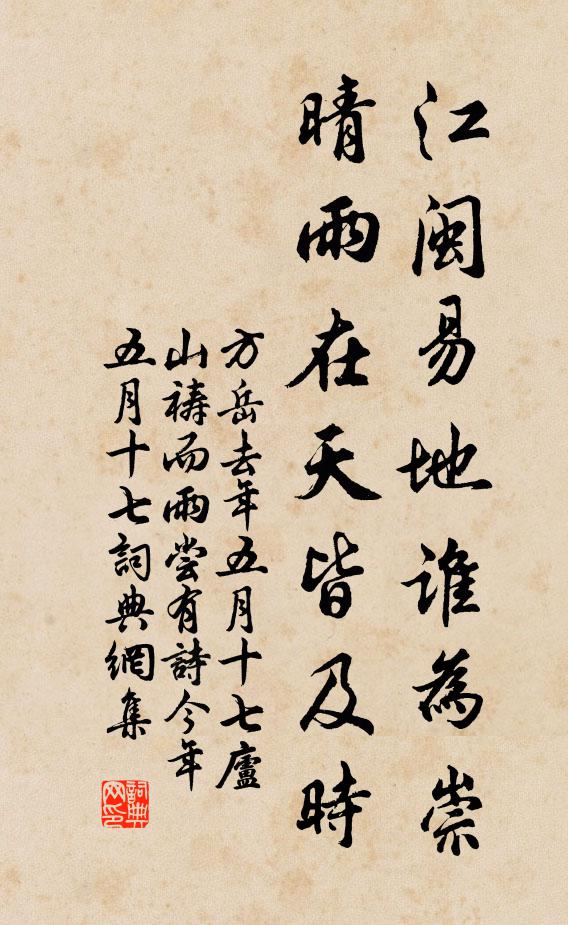 江閩易地誰為崇
晴雨在天皆及時
方岳去年五月十七廬
山禱而雨嘗有詩今年
五月十七詞典網集
詞典
网印